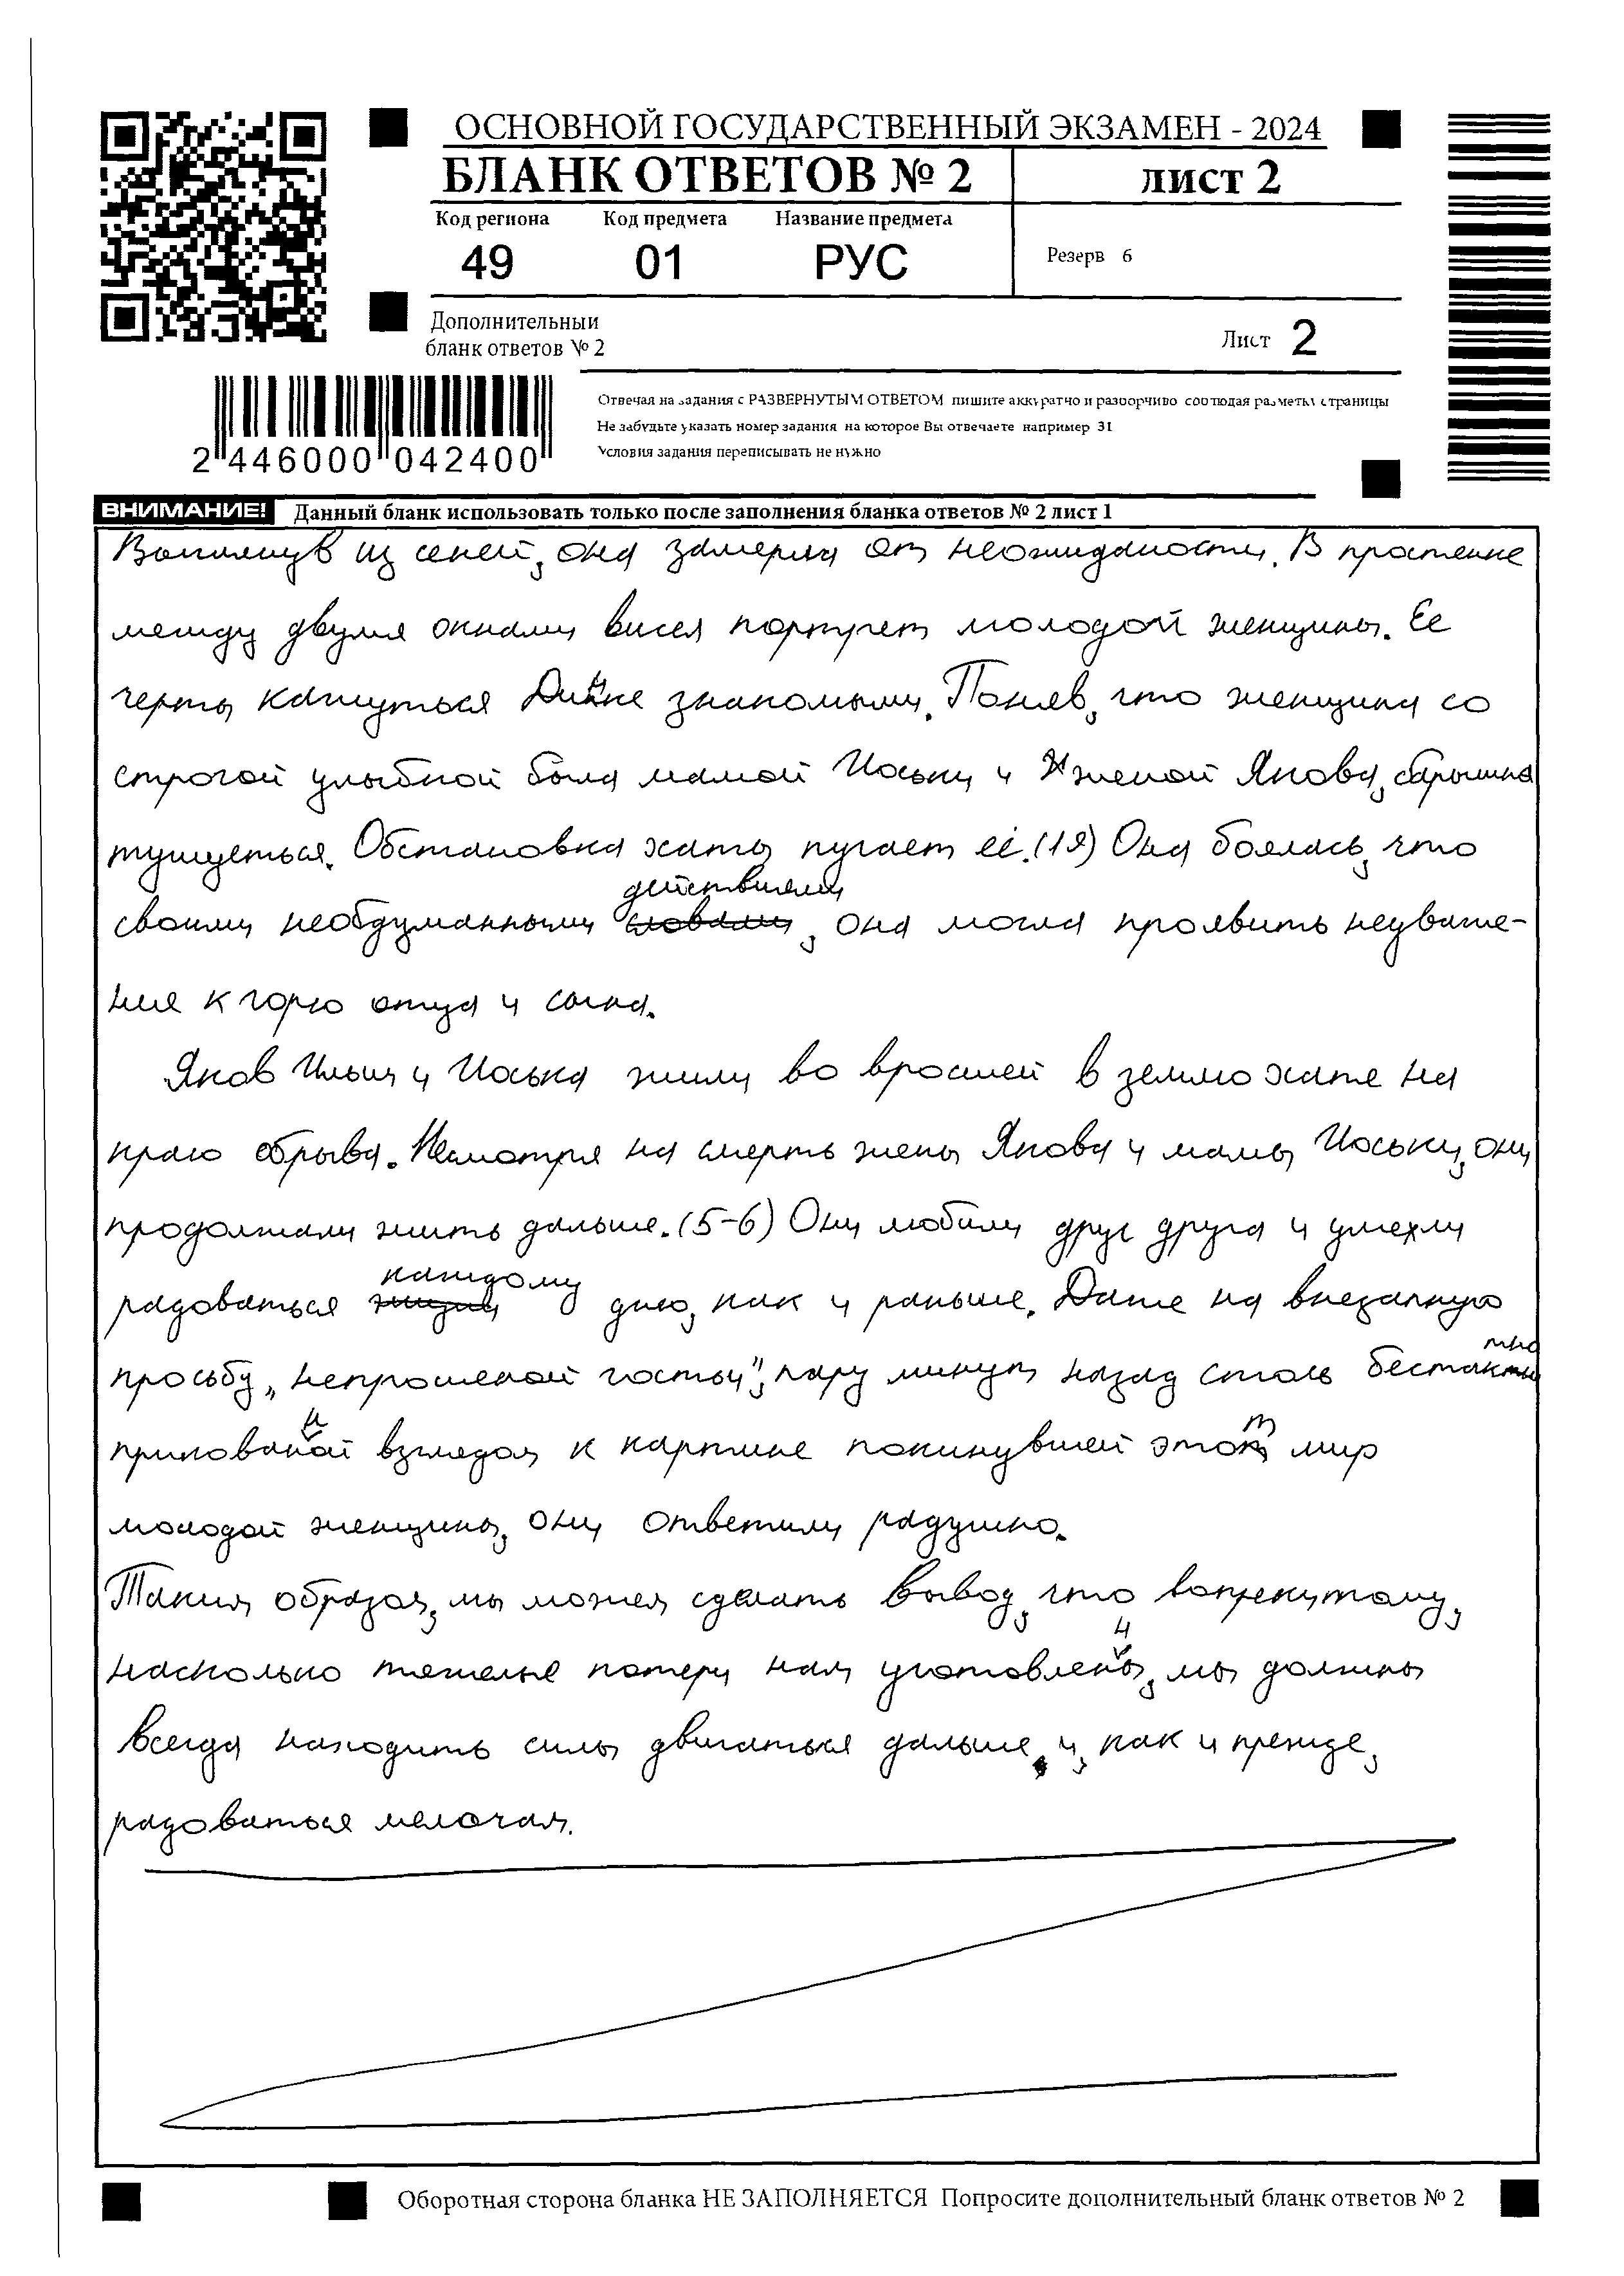 ОСНОВНОЙ ГОСУДАРСТВЕННЫЙ ЭКЗАМЕН - 2024
БЛАНК ОТВЕТОВ № 2
лист 2
Код региона Код предмета Название предмета
49 01 РУС
Резерв 6
Дополнительный
бланк ответов № 2
Лист 2
Отвечая на задания с РАЗВЕРНУТЫМ ОТВЕТОМ пишите аккуратно и разборчиво соблюдая разметку страницы
Не забудьте указать номер задания на которое Вы отвечаете например 31
Условия задания переписывать не нужно
2 446000 042400
ВНИМАНИЕ! Данный бланк использовать только после заполнения бланка ответов № 2 лист 1
из сеней, она замерла от неожиданости. В простенке
между двумя окнами висел портрет молодой женщины. Ее
черты кажуться Динке знакомыми. Поняв, что женщина со
строгой улыбкой была мамой Иоськи и женой Якова, барышня
тушуеться. Обстановка хаты пугает её. (19) Она боялась, что
своими необдуманными действиями, она могла проявить неуваже-
ние к горю отца и сына.
Яков Ильич и Иоська жили во вросшей в землю хате на
краю обрыва. Несмотря на смерть жены Якова и мамы Иоськи, они
продолжали жить дальше. (5-6) Они любили друг друга и умели
радоваться каждому дню, как и раньше. Даже на внезапную
просьбу „непрошеной гостьи", пару минут назад столь бестактно
прикованной взглядом к картине покинувшей этот мир
молодой женщины, они ответили радушно.
Таким образом, мы можем сделать вывод, что вопреки тому,
насколько тяжелые потери нам уготовленны, мы должны
всегда находить силы двигаться дальше и, как и прежде,
радоваться мелочам.
Оборотная сторона бланка НЕ ЗАПОЛНЯЕТСЯ Попросите дополнительный бланк ответов № 2